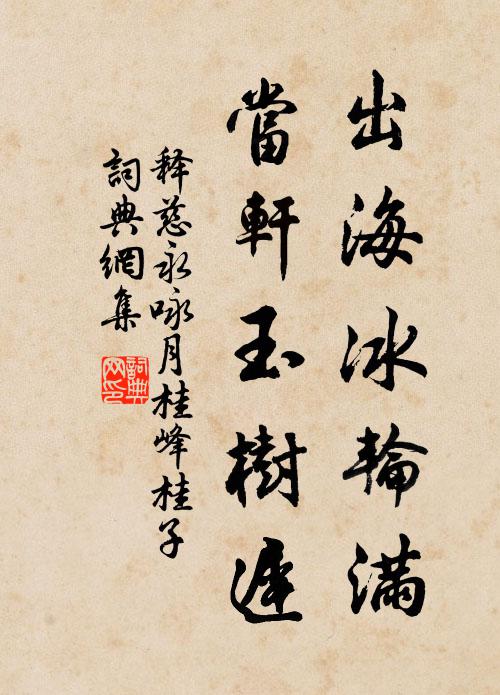 出海冰輪滿
當軒玉樹遲
释慈永咏月桂峰桂子
詞典網集
詞典
网印